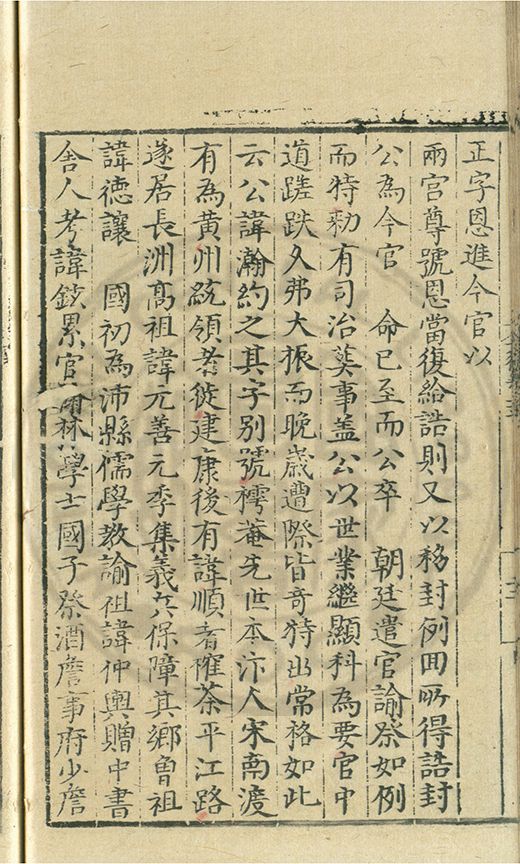 正字恩進今官以
兩宫尊號恩當復給誥則又以移封例囬所得誥封
公為今官　命已至而公卒　朝廷遣官諭祭如例
而特勑有司治𦵏事盖公以世業繼顯科為要官中
道蹉跌久弗大振而晚歲遭際皆奇特出常格如此
云公諱瀚約之其字别號樗菴先世本汴人宋南渡
有為黄州統領者徙建康後有諱順者榷茶平江路
遂居長洲髙祖諱元善元季集義兵保障其鄉曽祖
諱德讓　國初為沛縣儒學教諭祖諱仲輿贈中書
舍人考諱鉉累官翰林學士國子祭酒詹事府少詹